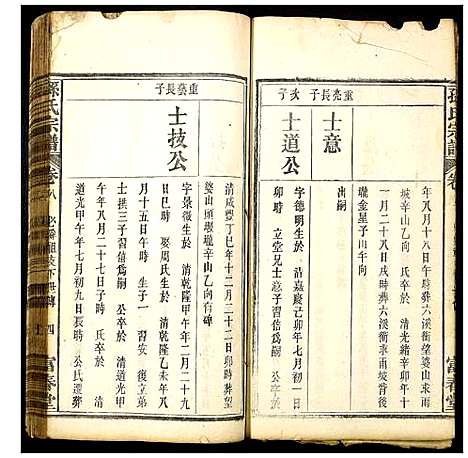 年八月十八日午時葬六溪衝來雨
坡辛山乙向 氏卒於清光緒辛卯年十
一月二十八日戌時葬六溪衝來雨坡背後
壠金星子山午向
重亮長子
士意
出嗣
次子
士道公
字德明生於 清嘉慶己卯年七月
卯時 立堂兄士意子習信為嗣 公卒於
清咸豐丁巳年十二月二十二日時葬望
婆山頭壠辛山乙向有碑
重藝長子
士技公
字景徵生於 清乾隆甲午年二月二十九
日巳時 娶周氏生於 清乾隆乙未年八
月十五日午時 生子一 習安 復立弟
士拱三子習信為嗣 公卒於 清道光甲
午年八月二十七日子時 氏卒於 清
道光甲午年七月初九日辰時 公氏遷葬
孫氏宗譜
卷八
四
富春堂
孫氏宗譜
卷
富春堂